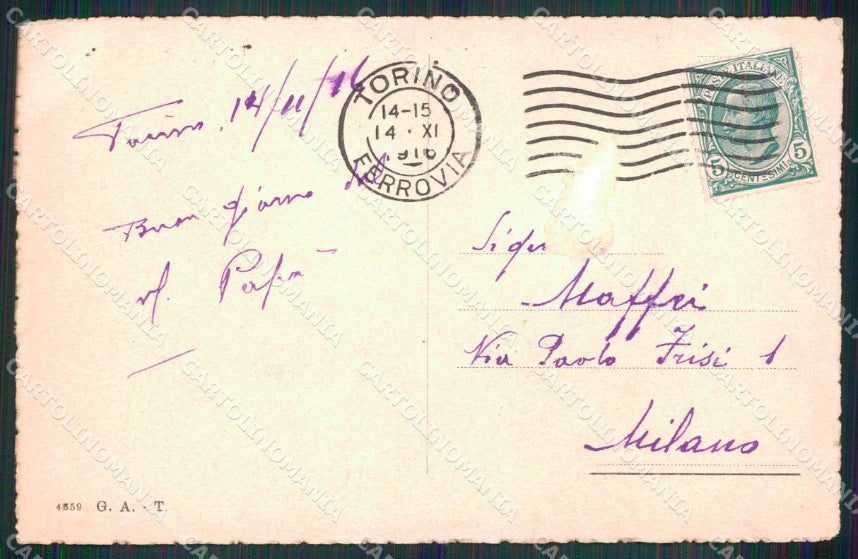 Torino, 14/11/16
Buon giorno dal
vs. Papà
TORINO
14-15
14 · XI
1916
FERROVIA
POSTE ITALIANE
5 CENTESIMI 5
Sigr
Maffei
Via Paolo Frisi 1
Milano
4559 G. A. - T.
CARTOLINOMANIA